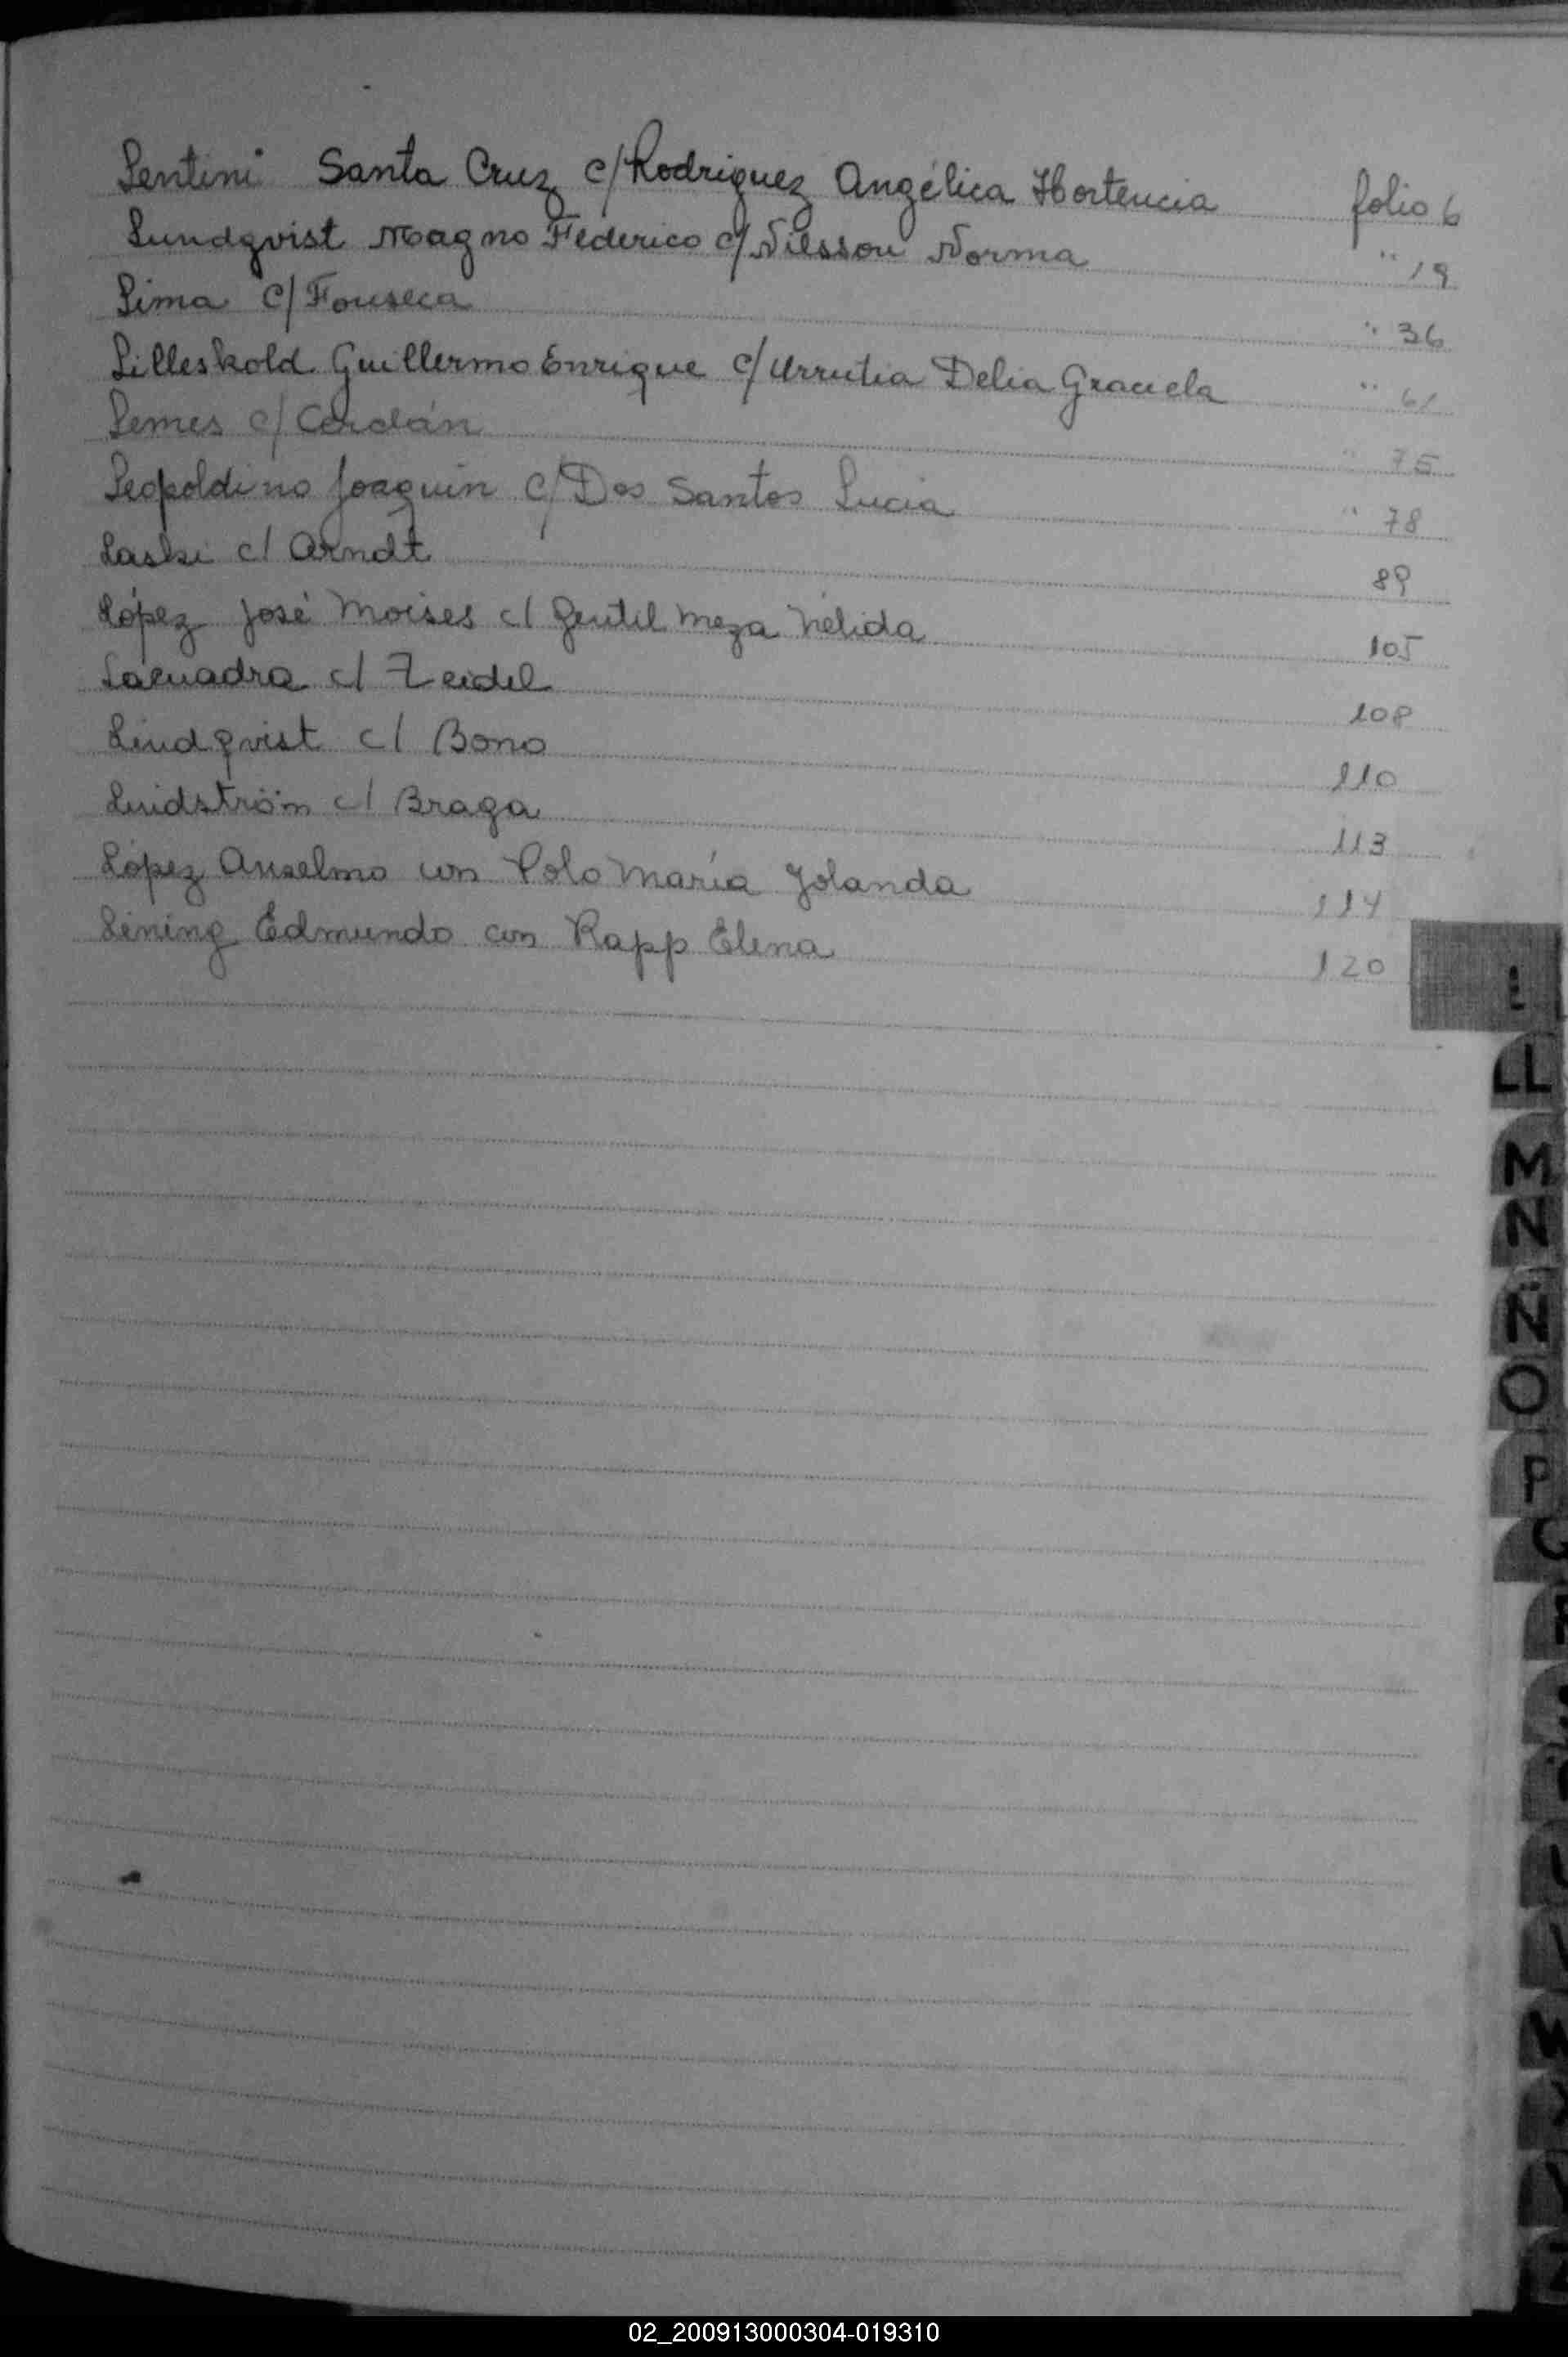 Lentini Santa Cruz c/ Rodriguez Angélica Hortencia folio 6
Lundqvist Magno Federico c/ Nilsson Norma " 19
Lima c/ Fonseca " 36
Lilleskold Guillermo Enrique c/ Urrutia Delia Graciela " 61
Lemes c/ Cerdán " 75
Leopoldino Joaquin c/ Dos Santos Lucia " 78
Laski c/ Arndt 89
López José Moises c/ Gentil Meza Nélida 105
Lacuadra c/ Zeidel 108
Lindqvist c/ Bono 110
Lindström c/ Braga 113
López Anselmo con Polo María Yolanda 114
Lening Edmundo con Rapp Elena 120
L
LL
M
N
Ñ
O
P
02_200913000304-019310